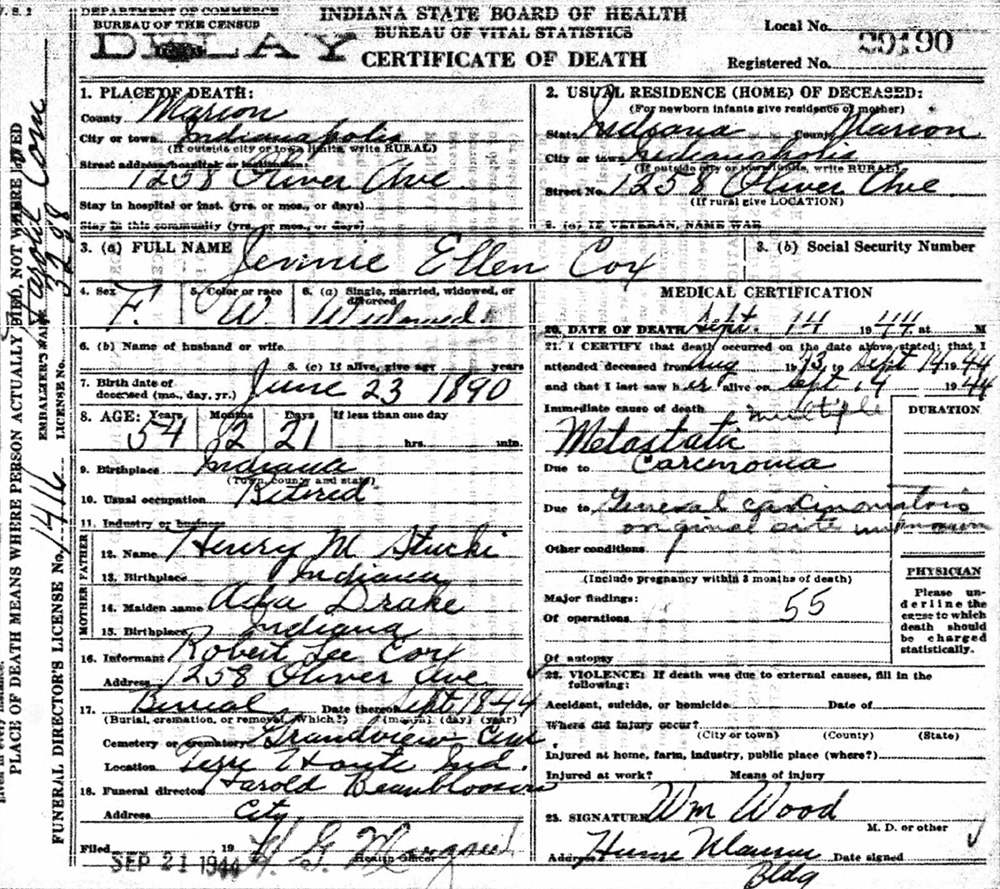 V. S. 1
DEPARTMENT OF COMMERCE
BUREAU OF THE CENSUS
DELAY
INDIANA STATE BOARD OF HEALTH
BUREAU OF VITAL STATISTICS
CERTIFICATE OF DEATH
Local No.
Registered No. 29190
1. PLACE OF DEATH:
County Marion
City or town Indianapolis
(If outside city or town limits, write RURAL)
Street address/hospital or institution:
1258 Oliver Ave
Stay in hospital or inst. (yrs. or mos., or days)
Stay in this community (yrs., or mos., or days)
2. USUAL RESIDENCE (HOME) OF DECEASED:
(For newborn infants give residence of mother)
State Indiana County Marion
City or town Indianapolis
(If outside city or town limits, write RURAL)
Street No. 1258 Oliver Ave
(If rural give LOCATION)
2. (a) IF VETERAN, NAME WAR
3. (a) FULL NAME Jennie Ellen Cox
3. (b) Social Security Number
4. Sex F.
5. Color or race W
6. (a) Single, married, widowed, or divorced Widowed
6. (b) Name of husband or wife
6. (c) If alive, give age years
7. Birth date of deceased (mo., day, yr.) June 23 1890
8. AGE: Years Months Days If less than one day
54 2 21 hrs. min.
9. Birthplace Indiana
(Town, county and state)
10. Usual occupation Retired
11. Industry or business
FATHER
12. Name Henry M Stucki
13. Birthplace Indiana
MOTHER
14. Maiden name Ada Drake
15. Birthplace Indiana
16. Informant Robert Lee Cox
Address 1258 Oliver Ave
17. Burial Date thereof Sept 18 44
(Burial, cremation, or removal, Which?) (month) (day) (year)
Cemetery or crematory Grandview Cem.
Location Terre Haute Ind.
18. Funeral director Harold
Address City
Filed SEP 21 1944 19
H. G.
Health Officer
MEDICAL CERTIFICATION
20. DATE OF DEATH Sept. 14 1944 at M
21. I CERTIFY that death occurred on the date above stated; that I
attended deceased from Aug 1943 to Sept 14 1944
and that I last saw her alive on Sept 14 1944
Immediate cause of death multiple
Metastatic
Due to Carcinoma
Due to General carcinomatosis
original site unknown
Other conditions
(Include pregnancy within 3 months of death)
Major findings:
Of operations 55
Of autopsy
DURATION
PHYSICIAN
Please underline the
cause to which
death should
be charged
statistically.
22. VIOLENCE: If death was due to external causes, fill in the
following:
Accident, suicide, or homicide Date of
Where did injury occur?
(City or town) (County) (State)
Injured at home, farm, industry, public place (where?)
Injured at work? Means of injury
23. SIGNATURE Wm Wood
M. D. or other
Address Hume Mansur Date signed
Bldg
PLACE OF DEATH MEANS WHERE PERSON ACTUALLY DIED, NOT WHERE
EMBALMER'S NAME Harold
LICENSE No. 3288
FUNERAL DIRECTOR'S LICENSE No. 1416